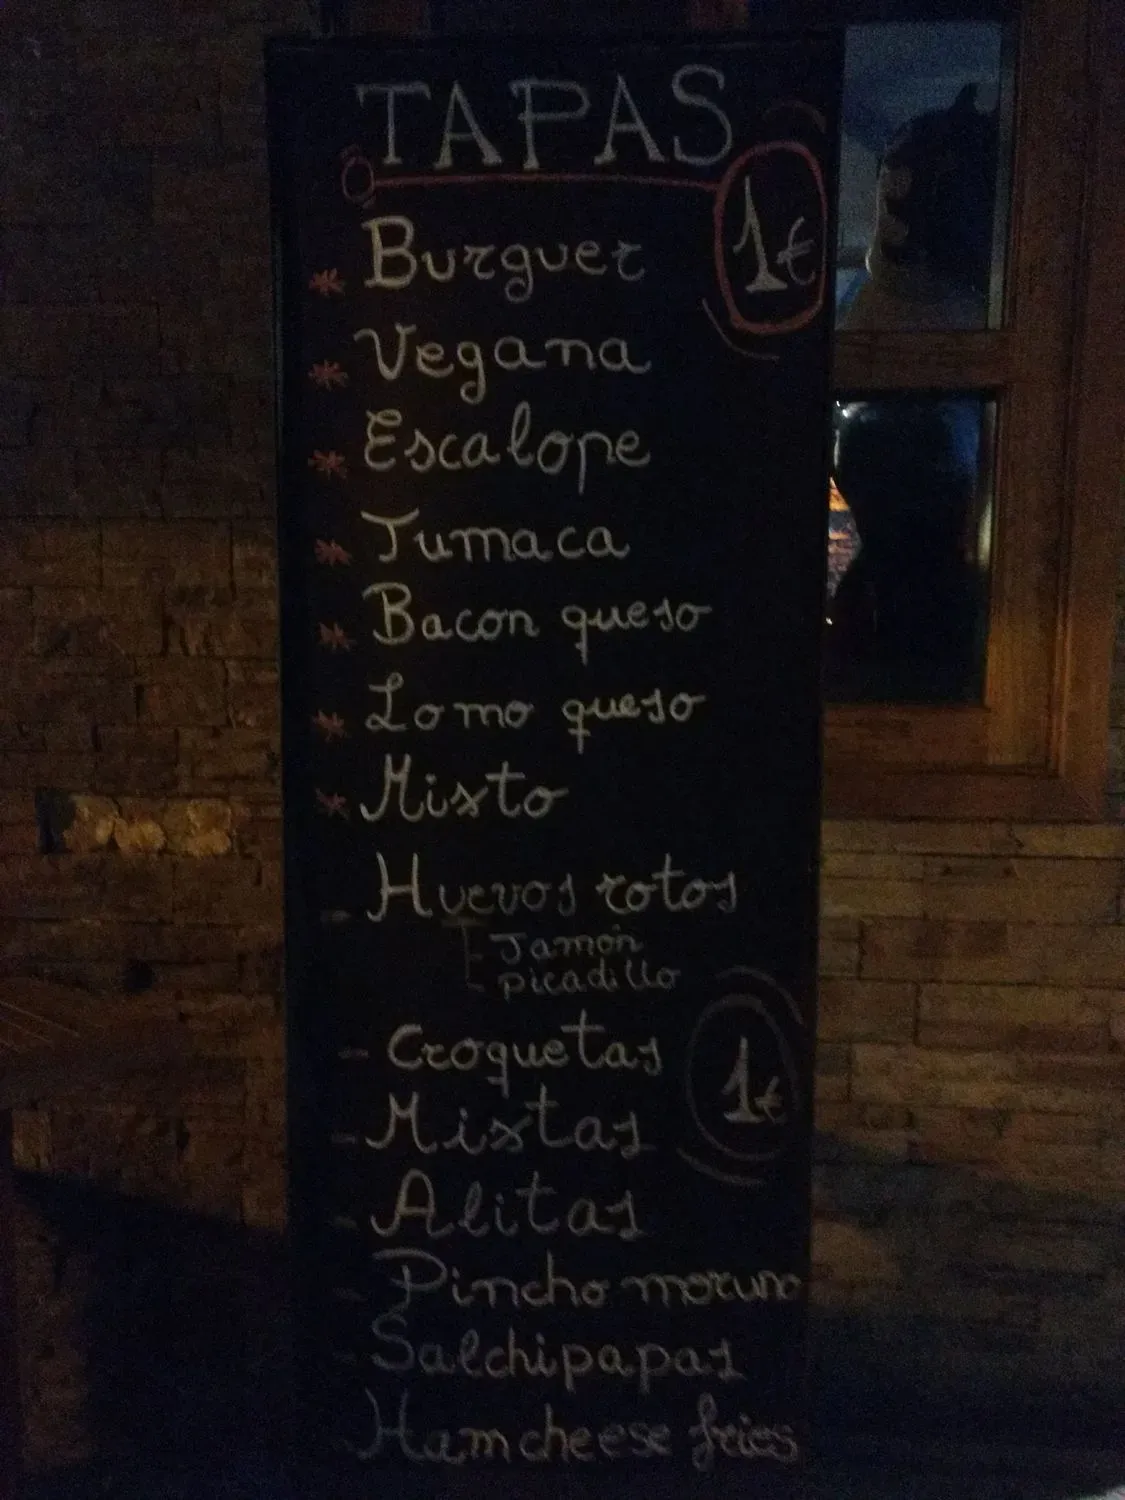 TAPAS
1€
* Burguer
* Vegana
* Escalope
* Tumaca
* Bacon queso
* Lomo queso
* Mixto
- Huevos rotos
- Jamón
- picadillo
- Croquetas
1€
- Mixtas
- Alitas
- Pincho moruno
- Salchipapas
Ham cheese fries